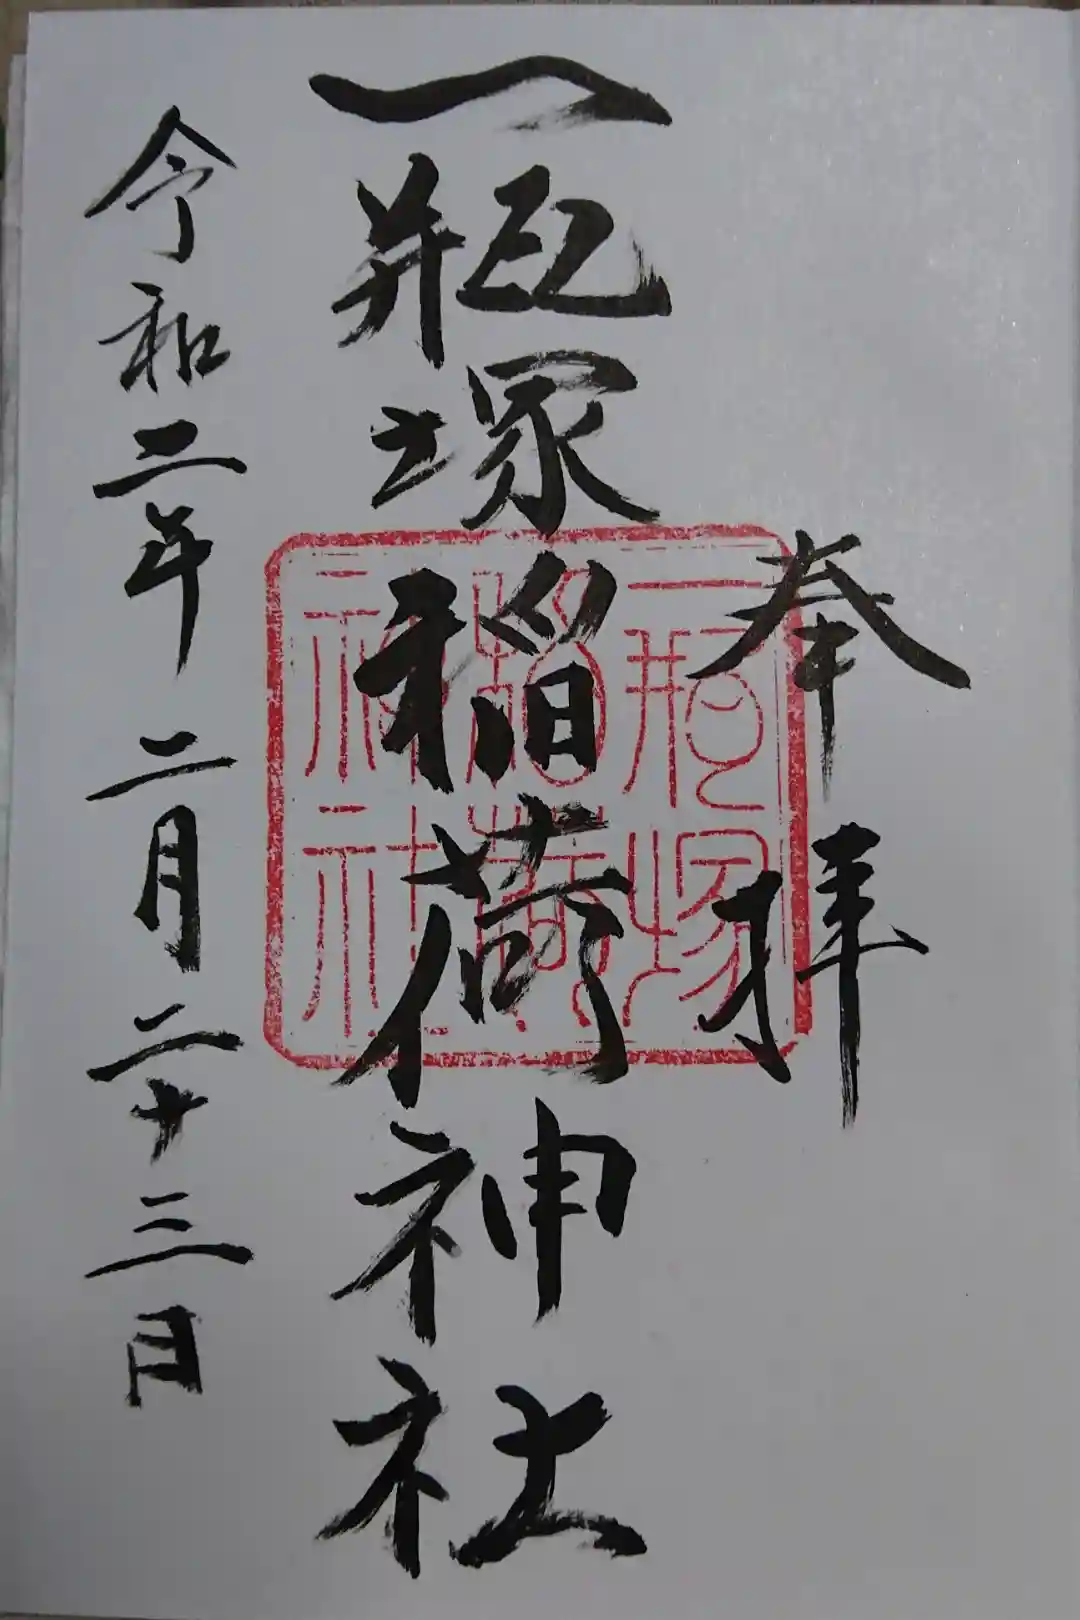 奉拝
一瓶塚稲荷神社
一瓶塚
稲荷
神社
令和二年 二月二十三日